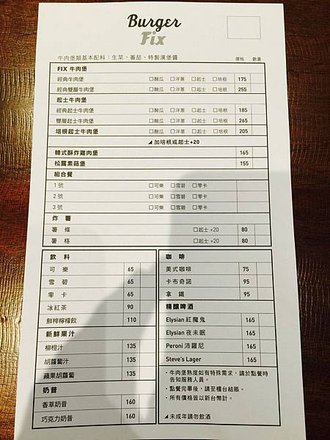 Burger
Fix
牛肉堡類基本配料：生菜、番茄、特製漢堡醬 價格 數量
FIX 牛肉堡
經典牛肉堡 □酸瓜 □洋蔥 □起士 □培根 175
經典雙層牛肉堡 □酸瓜 □洋蔥 □起士 □培根 255
起士牛肉堡
經典起士牛肉堡 □酸瓜 □洋蔥 □起士 □培根 185
雙層起士牛肉堡 □酸瓜 □洋蔥 □起士 □培根 265
培根起士牛肉堡 □酸瓜 □洋蔥 □起士 □培根 205
◢ 加培根或起士+20
韓式酥炸雞肉堡 165
松露素菇堡 155
組合餐
1 號 □可樂 □雪碧 □零卡
2 號 □可樂 □雪碧 □零卡
3 號 □可樂 □雪碧 □零卡
炸 薯
薯 條 □起士 +20 80
薯 格 □起士 +20 80
飲 料
可 樂 65
雪 碧 65
零 卡 65
冰紅茶 90
鮮榨檸檬飲 110
新鮮果汁
柳橙汁 135
胡蘿蔔汁 135
蘋果胡蘿蔔 135
奶昔
香草奶昔 160
巧克力奶昔 160
咖 啡
美式咖啡 75
卡布奇諾 95
拿 鐵 95
精釀啤酒
Elysian 紅魔鬼 165
Elysian 夜未眠 165
Peroni 沛羅尼 165
Steve's Lager 165
・牛肉堡熟度如有特殊需求，請於點餐時
告知服務人員。
・點餐完畢後，請至櫃台結賬。
・所有價格皆以新台幣計。
◢ 未成年請勿飲酒